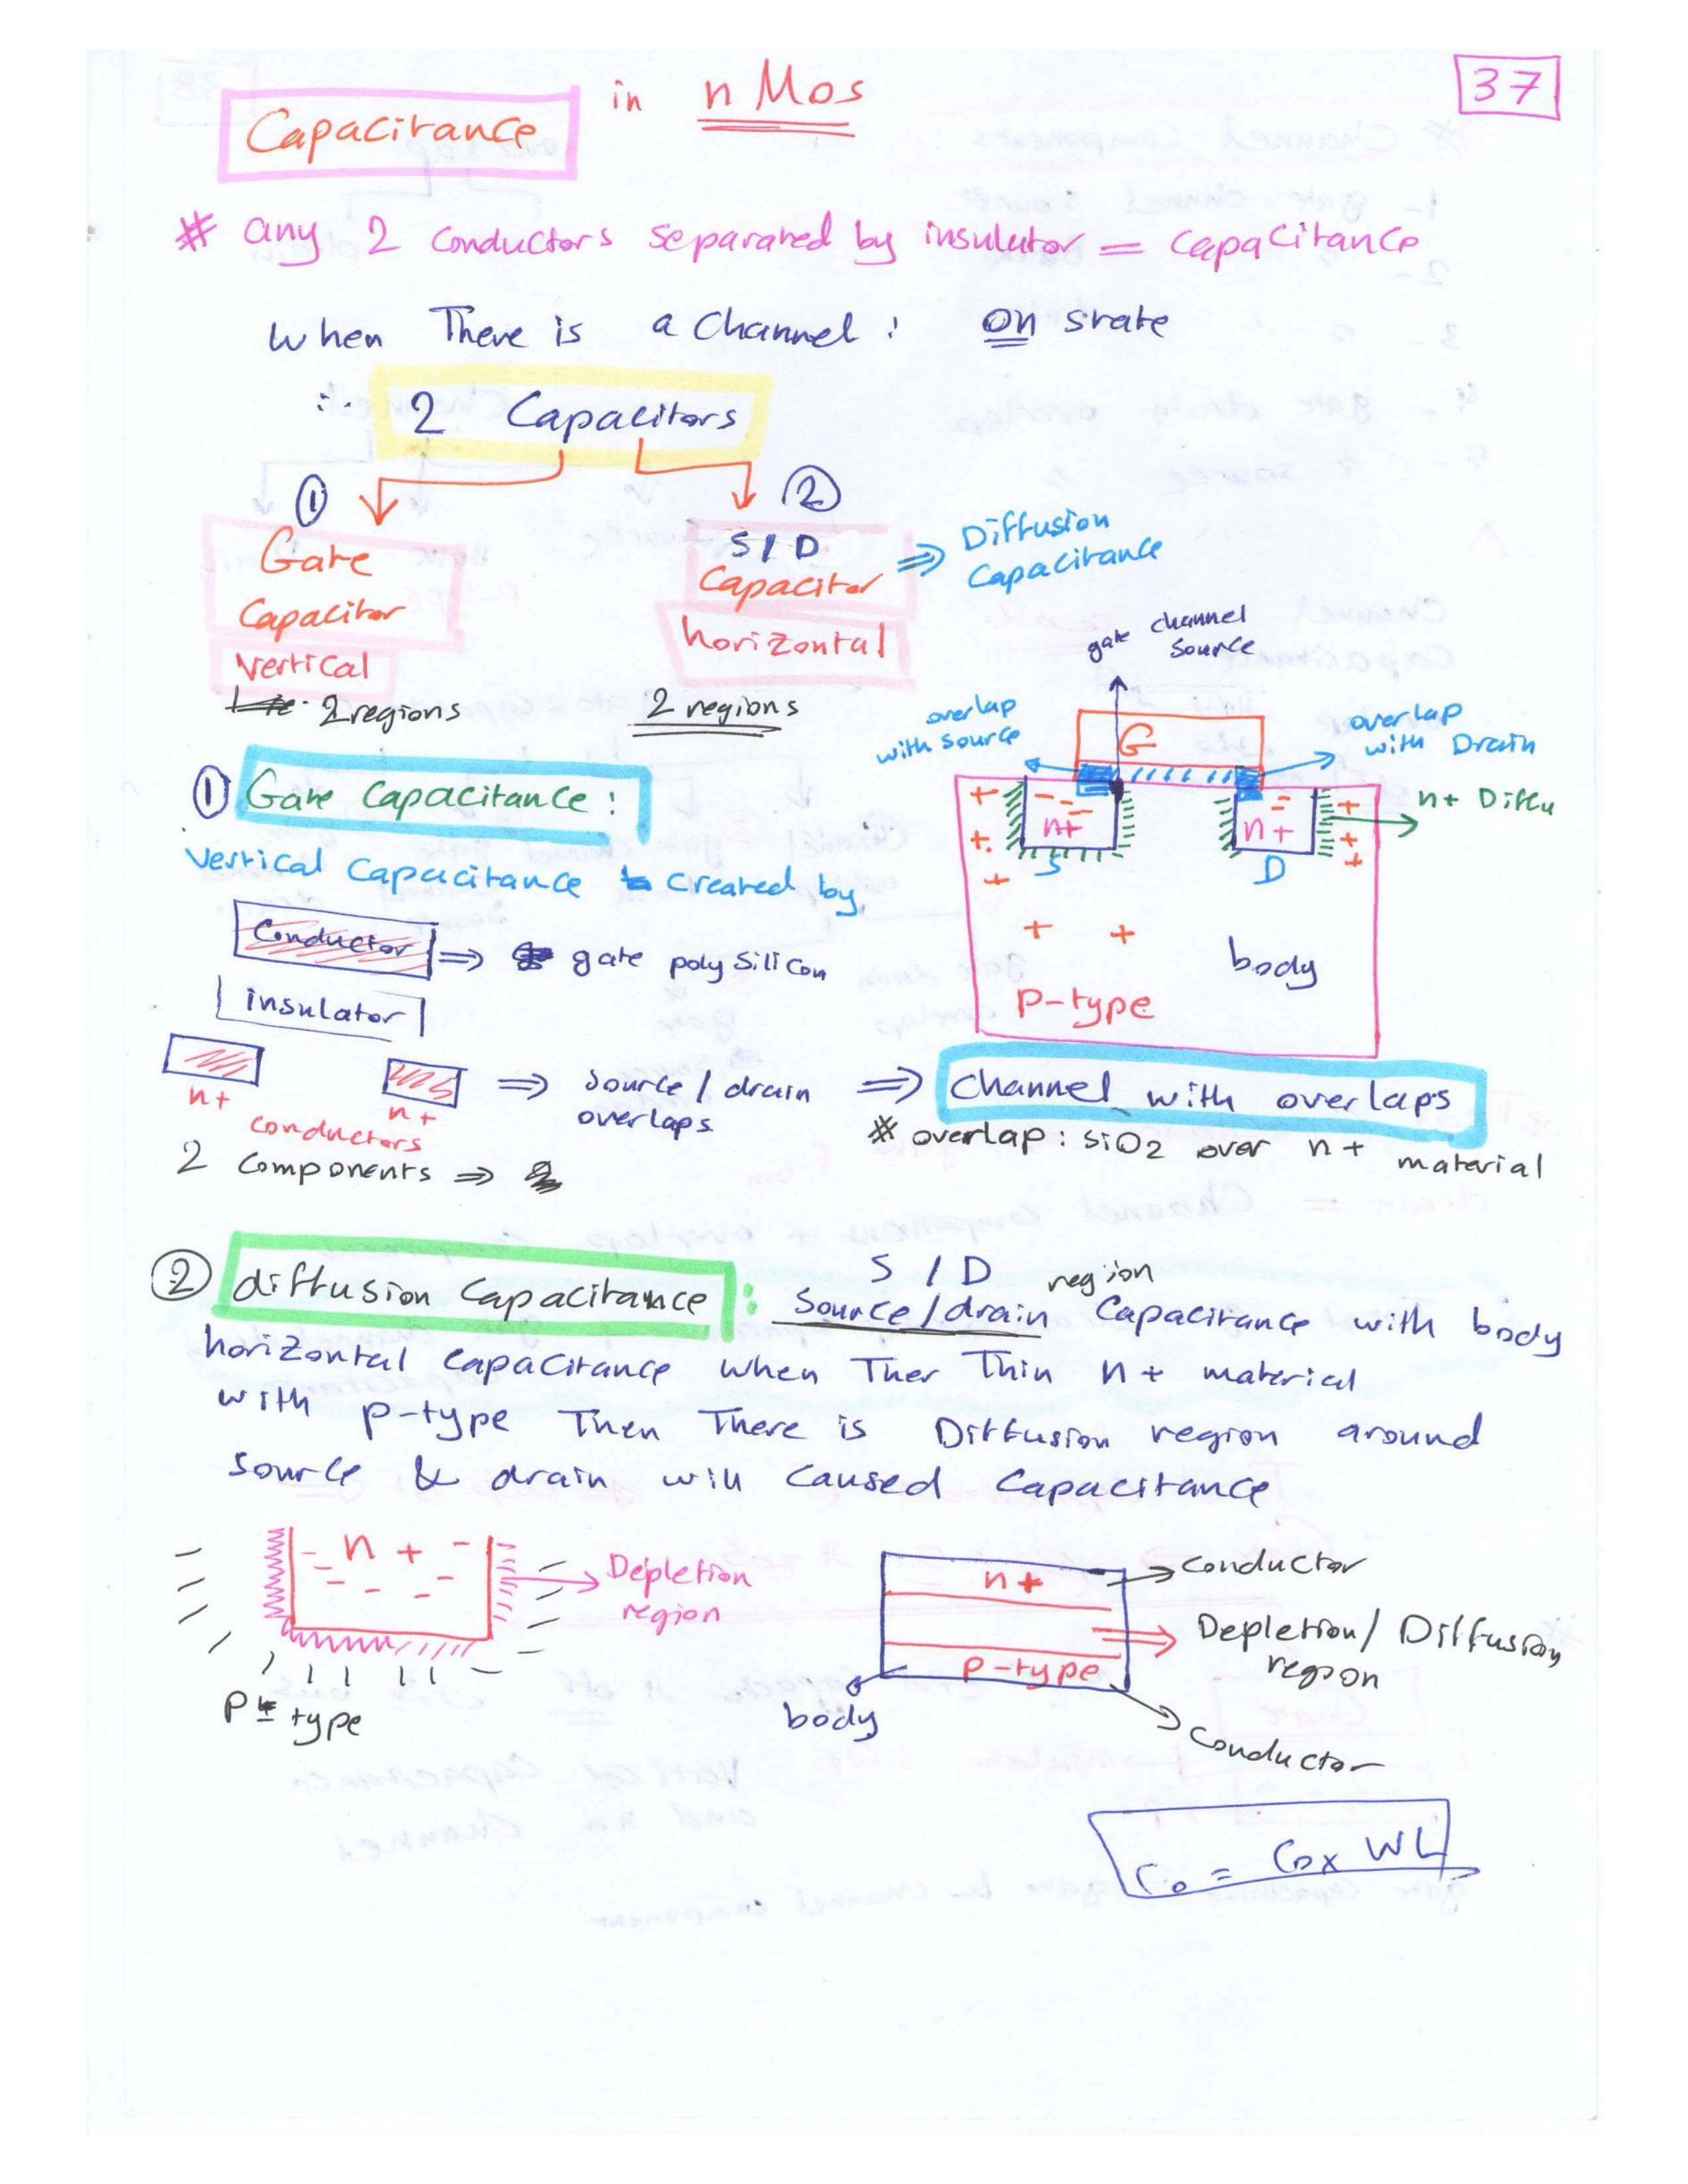 37
Capacitance in nMos
# any 2 conductors separated by insulator = capacitance
when There is a channel : on state
∴ 2 Capacitors
① ②
Gate
Capacitor
Vertical
2 regions
S/D
Capacitor
horizontal
2 regions
⇒ Diffusion
Capacitance
gate channel
source
overlap
with source
overlap
with Drain
G
n+ Diffu
+ - - n+ - n+ +
S D
+ +
body
p-type
① Gate Capacitance :
Vertical Capacitance created by
Conductor ⇒ gate poly silicon
insulator
n+ n+ ⇒ source / drain
overlaps ⇒ channel with overlaps
conductors
# overlap : SiO2 over n+ material
2 components ⇒
② diffusion Capacitance : S / D region
Source/drain Capacitance with body
horizontal capacitance when Ther Thin n+ material
with p-type Then There is Diffusion region around
source & drain will caused Capacitance
n +
Depletion
region
P type
n+ → conductor
Depletion/ Diffusion
region
p-type
body
Conductor
Co = Cox WL